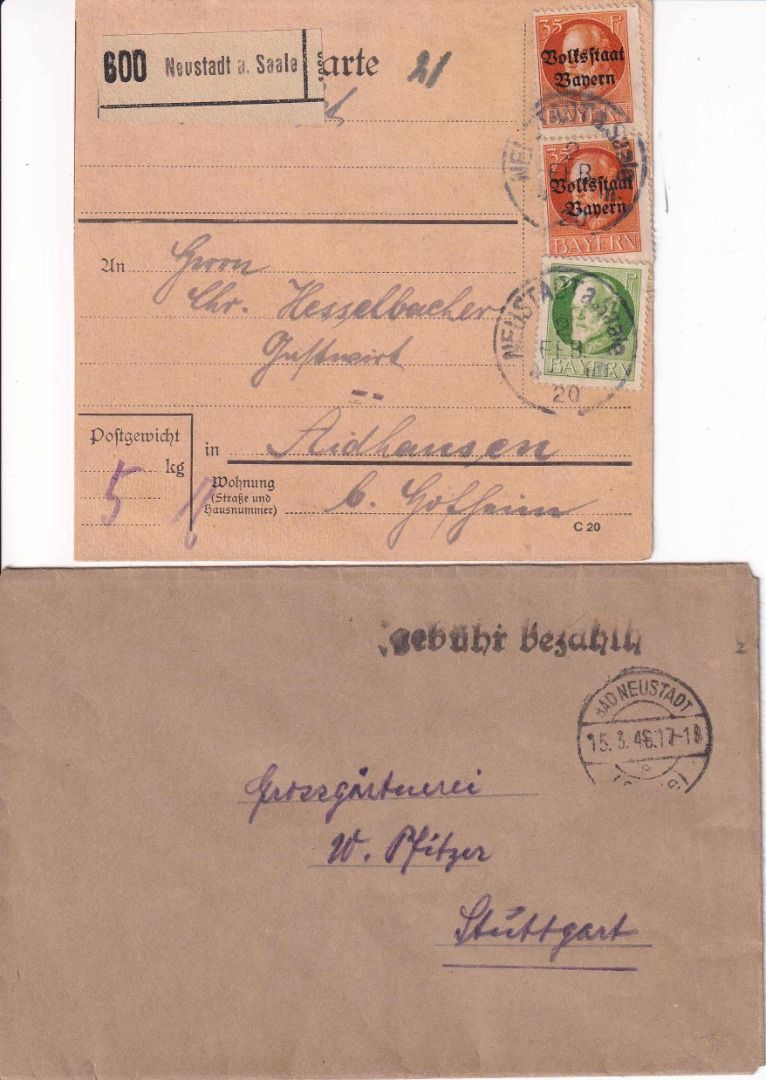 600 Neustadt a. Saale
arte 21
35 Pf
Volksstaat
Bayern
BAYERN
35
Volksstaat
Bayern
BAYERN
NEUSTADT a. Saale
2
FEB
20
BAYERN
NEUSTADT a. Saale
2
FEB
20
An Herrn
Chr. Hesselbacher
Gastwirt
Postgewicht
5 kg
in Aidhausen
Wohnung
(Straße und
Hausnummer)
b. Hofheim
C 20
Gebühr bezahlt
2
BAD NEUSTADT
15.3.46.17-18
Grossgärtnerei
W. Pfitzer
Stuttgart